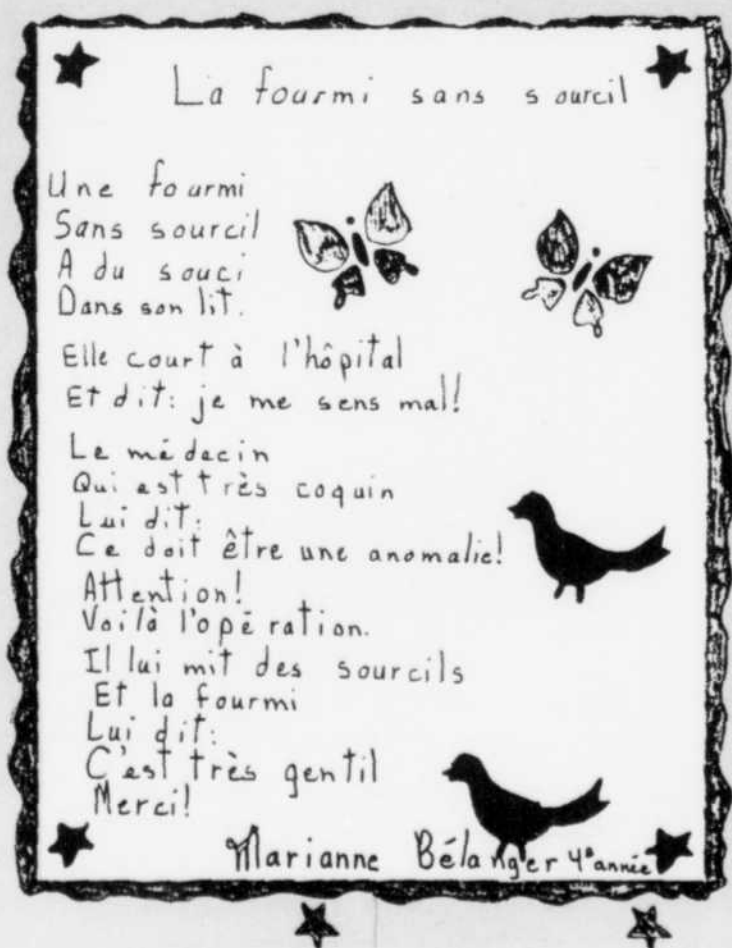 La fourmi sans sourcil
Une fourmi
Sans sourcil
A du souci
Dans son lit.
Elle court à l'hôpital
Et dit: je me sens mal!
Le médecin
Qui est très coquin
Lui dit:
Ce doit être une anomalie!
Attention!
Voilà l'opération.
Il lui mit des sourcils
Et la fourmi
Lui dit:
C'est très gentil
Merci!
Marianne Bélanger 4e année